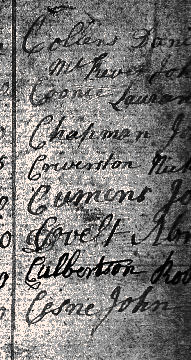 Collens Dani
McKever Joh
Coonce Lauran
Chapman J
Criverston Nich
Cumens Jo
Covelt Abr
Culbertson Rob
Cesne John